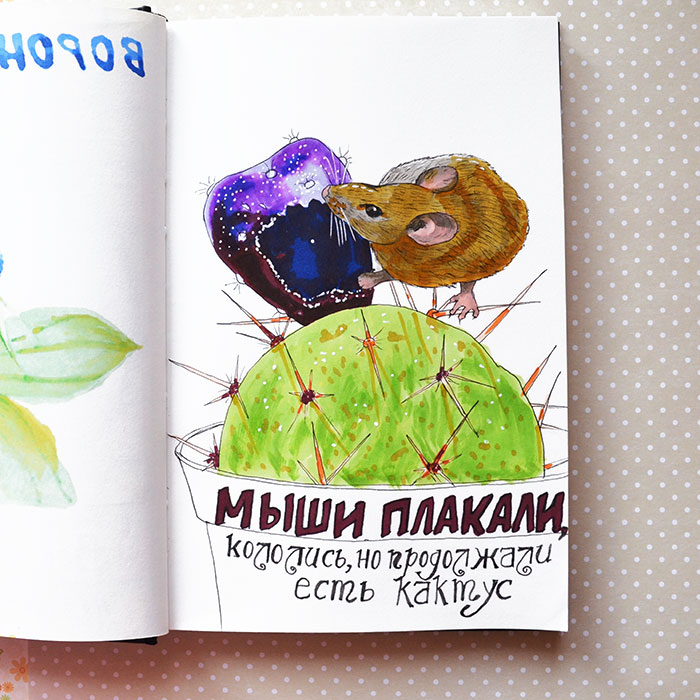 ВОРОН
МЫШИ ПЛАКАЛИ,
КОЛОЛИСЬ, НО ПРОДОЛЖАЛИ
ЕСТЬ КАКТУС